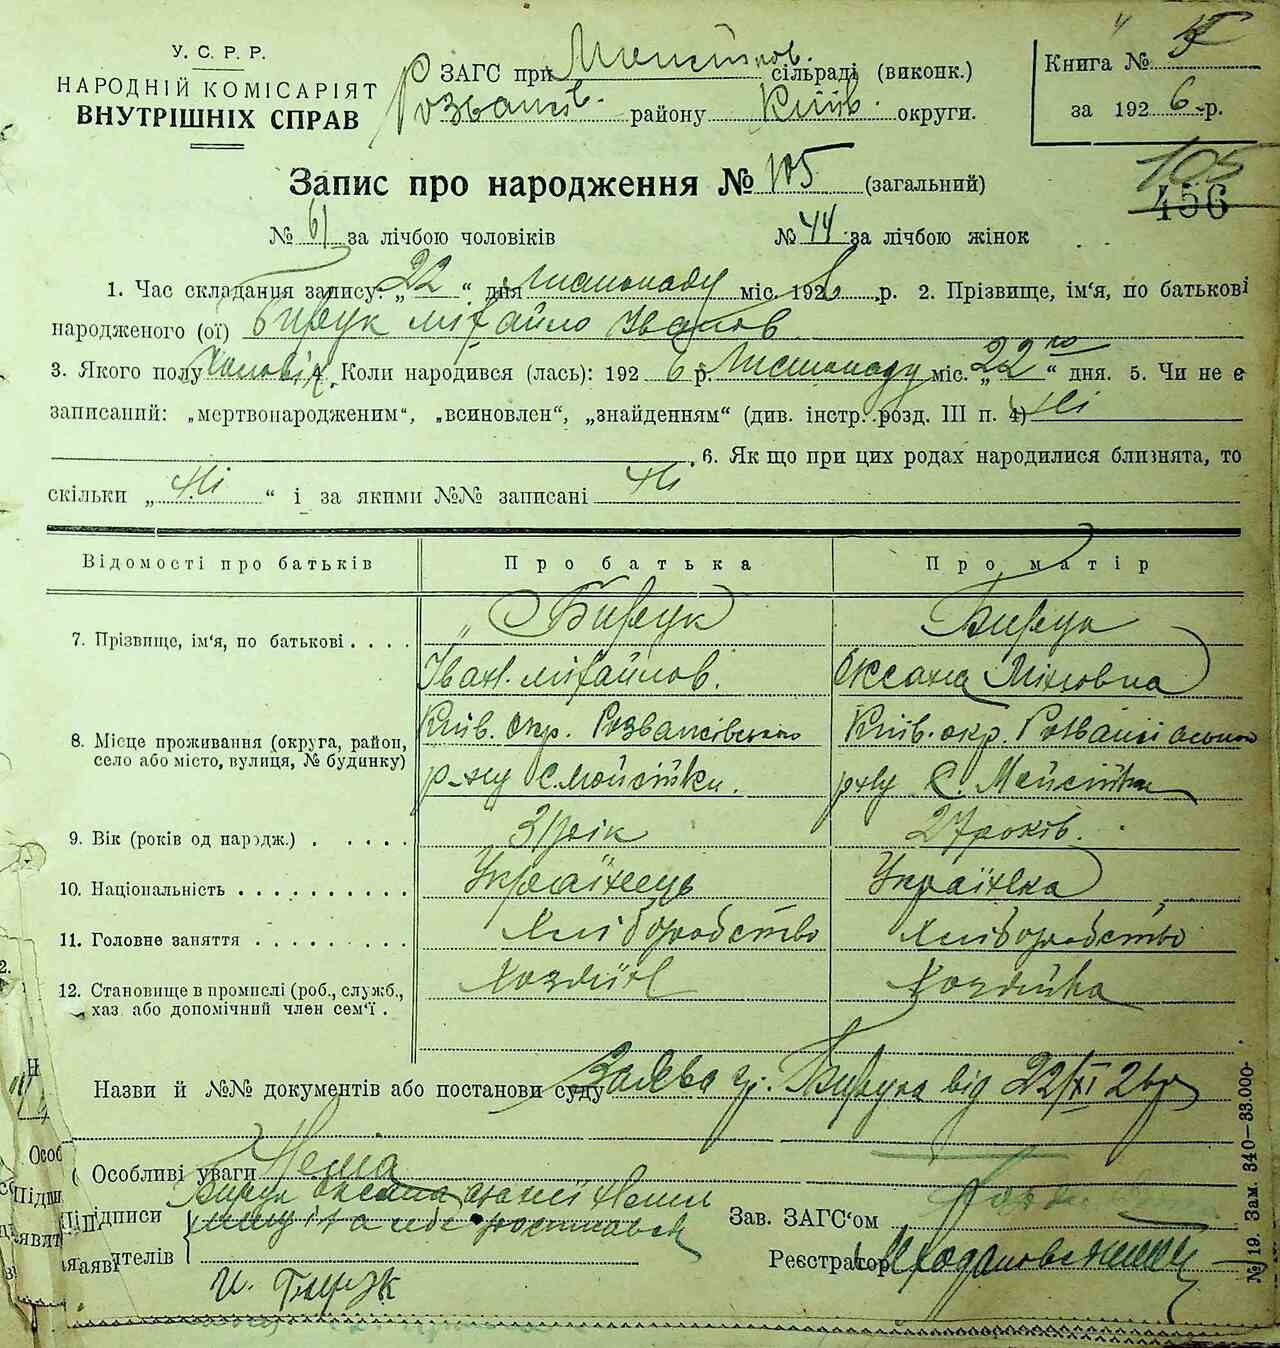 У. С. Р. Р.
НАРОДНІЙ КОМІСАРІЯТ
ВНУТРІШНІХ СПРАВ
ЗАГС при сільраді (виконк.)
району Київ. округи.
Книга № 5
за 1926 р.
Запис про народження № 105 (загальний)
105
456
№ 61 за лічбою чоловіків № 44 за лічбою жінок
1. Час складання запису: „22“ дня Листопаду міс. 1926 р. 2. Прізвище, ім'я, по батькові
народженого (ої) Бирук Міхайло Іванов
3. Якого полу Чоловіч. 4. Коли народився (лась): 1926 р. Листопаду міс. „22го“ дня. 5. Чи не є
записаний: „мертвонародженим“, „всиновлен“, „знайденням“ (див. інстр. розд. III п. 4) Ні
6. Як що при цих родах народилися близнята, то
скільки „Ні“ і за якими №№ записані Ні
Відомості про батьків Про батька Про матір
7. Прізвище, ім'я, по батькові Бирук Бирук
Іван Міхайлов. Оксана
8. Місце проживання (округа, район, село або місто, вулиця, № будинку) Київ. окр. Київ. окр.
р-ну с. р-ну с.
9. Вік (років од народж.) 31 рік 27 років.
10. Національність Українець Українка
11. Головне заняття Хліборобство Хліборобство
12. Становище в промислі (роб., служб., хаз. або допомічний член сем'ї. Хозяїн Хозяйка
Назви й №№ документів або постанови суду Заява гр. Бирука від 22/XI 26р
Особливі уваги Нема
Підписи Бирук Оксана
заявителів
И. Бирук
Зав. ЗАГС'ом
Реєстратор
№ 19. Зам. 340—33.000-